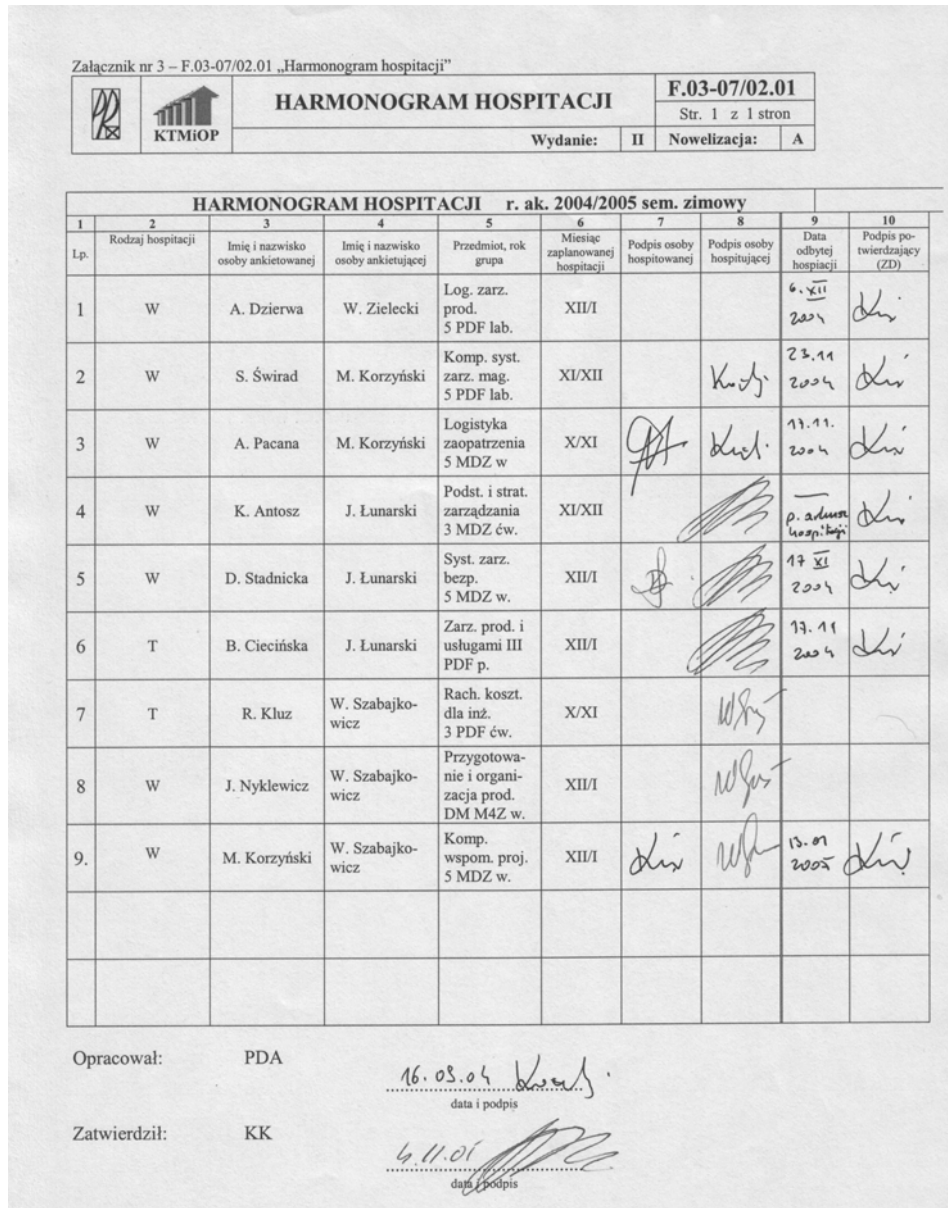 Załącznik nr 3 – F.03-07/02.01 „Harmonogram hospitacji”
KTMiOP
HARMONOGRAM HOSPITACJI
F.03-07/02.01
Str. 1 z 1 stron
Wydanie: II Nowelizacja: A
HARMONOGRAM HOSPITACJI r. ak. 2004/2005 sem. zimowy
1 2 3 4 5 6 7 8 9 10
Lp.
Rodzaj hospitacji
Imię i nazwisko
osoby ankietowanej
Imię i nazwisko
osoby ankietującej
Przedmiot, rok
grupa
Miesiąc
zaplanowanej
hospitacji
Podpis osoby
hospitowanej
Podpis osoby
hospitującej
Data
odbytej
hospiacji
Podpis po-
twierdzający
(ZD)
1 W A. Dzierwa W. Zielecki
Log. zarz.
prod.
5 PDF lab.
XII/I
6. XII
2004
2 W S. Świrad M. Korzyński
Komp. syst.
zarz. mag.
5 PDF lab.
XI/XII
23.11
2004
3 W A. Pacana M. Korzyński
Logistyka
zaopatrzenia
5 MDZ w
X/XI
17.11.
2004
4 W K. Antosz J. Łunarski
Podst. i strat.
zarządzania
3 MDZ ćw.
XI/XII
hospitacji
5 W D. Stadnicka J. Łunarski
Syst. zarz.
bezp.
5 MDZ w.
XII/I
17 XI
2004
6 T B. Ciecińska J. Łunarski
Zarz. prod. i
usługami III
PDF p.
XII/I
17.11
2004
7 T R. Kluz
W. Szabajko-
wicz
Rach. koszt.
dla inż.
3 PDF ćw.
X/XI
8 W J. Nyklewicz
W. Szabajko-
wicz
Przygotowa-
nie i organi-
zacja prod.
DM M4Z w.
XII/I
9. W M. Korzyński
W. Szabajko-
wicz
Komp.
wspom. proj.
5 MDZ w.
XII/I
13.01
2005
Opracował: PDA
16.09.04
data i podpis
Zatwierdził: KK
data i podpis